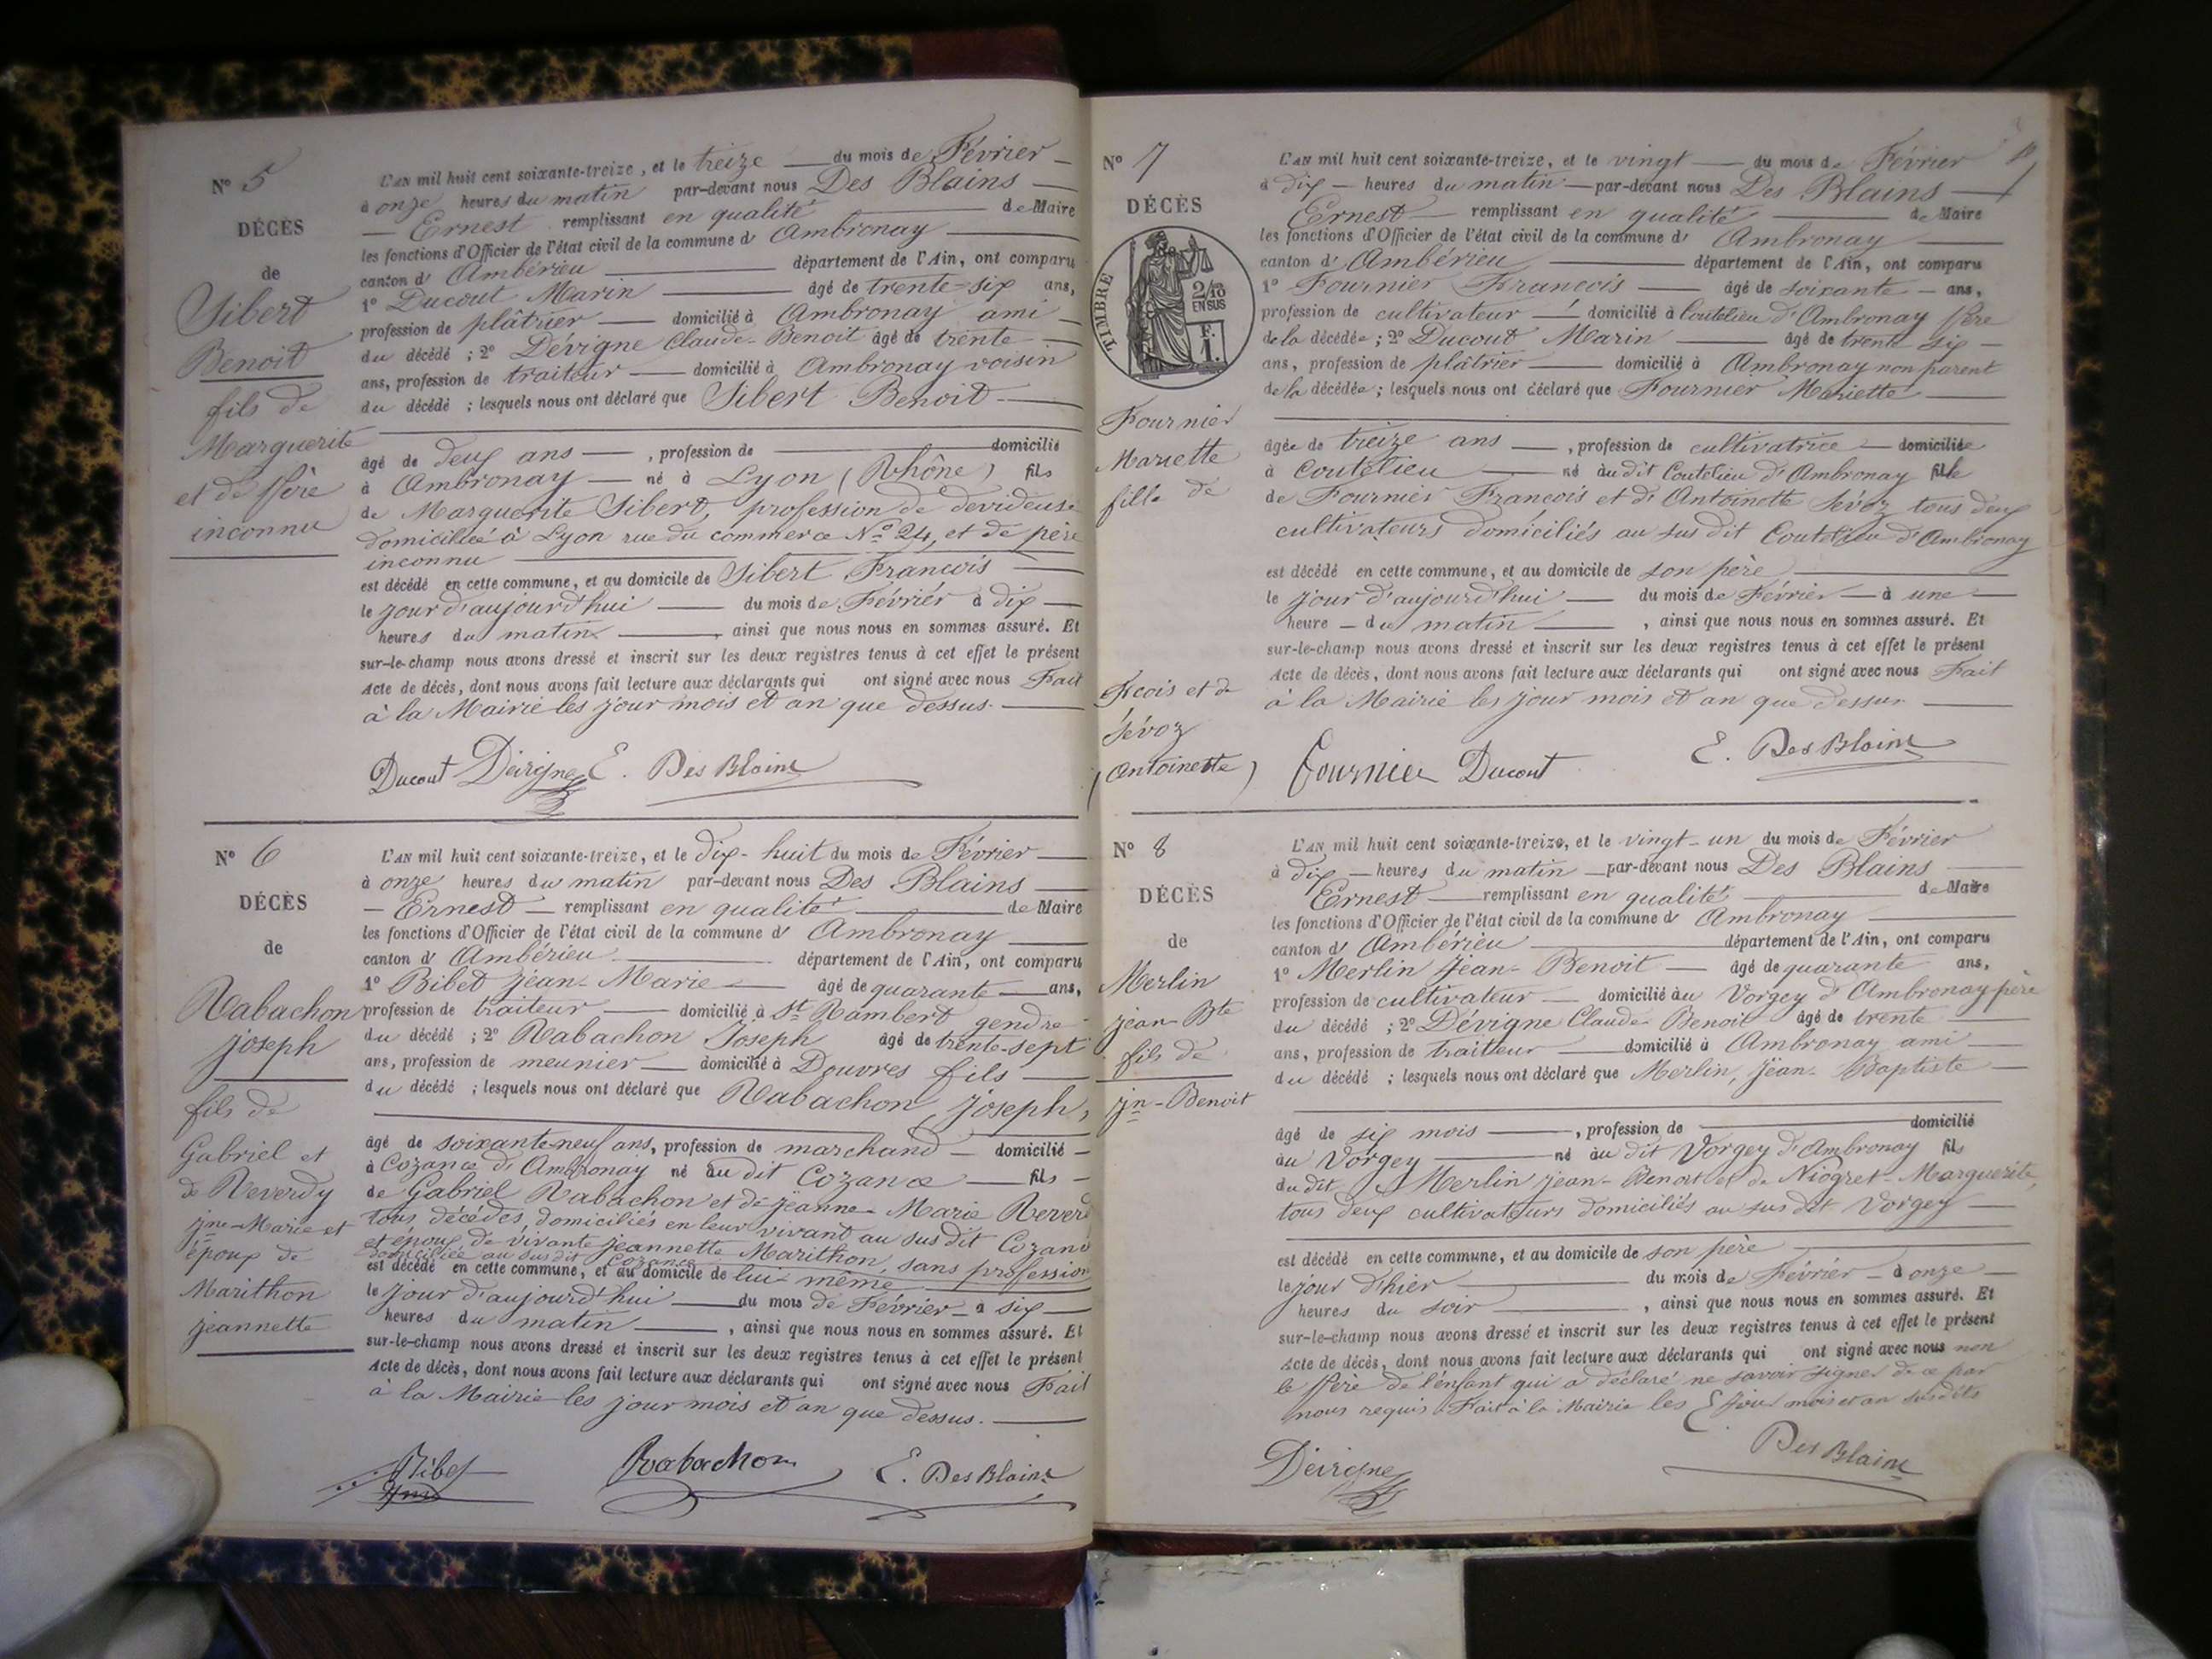 N° 5
DÉCÈS
de
Sibert
Benoit
fils de
Marguerite
et de Père
inconnu
L'AN mil huit cent soixante-treize, et le treize du mois de Février
à onze heures du matin par-devant nous Des Blains
Ernest remplissant en qualité de Maire
les fonctions d'Officier de l'état civil de la commune d' Ambronay
canton d' Ambérieu département de l'Ain, ont comparu
1° Ducout Marin âgé de trente-six ans,
profession de plâtrier domicilié à Ambronay ami
du décédé ; 2° Dévigne Claude-Benoit âgé de trente
ans, profession de traiteur domicilié à Ambronay voisin
du décédé ; lesquels nous ont déclaré que Sibert Benoit
âgé de deux ans , profession de domicilié
à Ambronay né à Lyon (Rhône) fils
de Marguerite Sibert, profession de devideuse
domiciliée à Lyon rue du commerce N° 24, et de père
inconnu
est décédé en cette commune, et au domicile de Sibert Francois
le jour d'aujourd'hui du mois de Février à dix
heures du matin , ainsi que nous nous en sommes assuré. Et
sur-le-champ nous avons dressé et inscrit sur les deux registres tenus à cet effet le présent
Acte de décès, dont nous avons fait lecture aux déclarants qui ont signé avec nous Fait
à la Mairie les jour mois et an que dessus.
Ducout Dévigne E. Des Blains
N° 6
DÉCÈS
de
Rabachon
joseph
fils de
Gabriel et
de Reverdy
jne-Marie et
époux de
Marithon
jeannette
L'AN mil huit cent soixante-treize, et le dix-huit du mois de Février
à onze heures du matin par-devant nous Des Blains
Ernest remplissant en qualité de Maire
les fonctions d'Officier de l'état civil de la commune d' Ambronay
canton d' Ambérieu département de l'Ain, ont comparu
1° Bibet jean-Marie âgé de quarante ans,
profession de traiteur domicilié à St Rambert gendre
du décédé ; 2° Rabachon Joseph âgé de trente-sept
ans, profession de meunier domicilié à Douvres fils
du décédé ; lesquels nous ont déclaré que Rabachon, joseph,
âgé de soixante-neuf ans, profession de marchand domicilié
à Cozance d'Ambronay né au dit Cozance fils
de Gabriel Rabachon et de jeanne-Marie Reverd
tous décédés, domiciliés en leur vivant au sus dit Cozance
et époux de vivante jeannette Marithon, sans profession
domiciliée au sus dit Cozance
est décédé en cette commune, et au domicile de lui-même
le jour d'aujourd'hui du mois de Février à six
heures du matin , ainsi que nous nous en sommes assuré. Et
sur-le-champ nous avons dressé et inscrit sur les deux registres tenus à cet effet le présent
Acte de décès, dont nous avons fait lecture aux déclarants qui ont signé avec nous Fait
à la Mairie les jour mois et an que dessus.
Bibet Rabachon E. Des Blains
N° 7
DÉCÈS
TIMBRE
2/10
EN SUS
F.
1.
Fournier
Mariette
fille de
Fcois et de
Sévoz
(Antoinette)
L'AN mil huit cent soixante-treize, et le vingt du mois de Février
à dix heures du matin par-devant nous Des Blains
Ernest remplissant en qualité de Maire
les fonctions d'Officier de l'état civil de la commune d' Ambronay
canton d' Ambérieu département de l'Ain, ont comparu
1° Fournier Francois âgé de soixante ans,
profession de cultivateur domicilié à Coutelieu d'Ambronay Père
de la décédée ; 2° Ducout Marin âgé de trente six
ans, profession de plâtrier domicilié à Ambronay non parent
de la décédée ; lesquels nous ont déclaré que Fournier Mariette
âgée de treize ans , profession de cultivatrice domiciliée
à Coutelieu né au dit Coutelieu d'Ambronay fille
de Fournier Francois et d' Antoinette Sévoz tous deux
cultivateurs domiciliés au sus dit Coutelieu d'Ambronay
est décédé en cette commune, et au domicile de son père
le jour d'aujourd'hui du mois de Février à une
heure du matin , ainsi que nous nous en sommes assuré. Et
sur-le-champ nous avons dressé et inscrit sur les deux registres tenus à cet effet le présent
Acte de décès, dont nous avons fait lecture aux déclarants qui ont signé avec nous Fait
à la Mairie les jour mois et an que dessus
Fournier Ducout E. Des Blains
N° 8
DÉCÈS
de
Merlin
jean-Bte
fils de
jn-Benoit
L'AN mil huit cent soixante-treize, et le vingt-un du mois de Février
à dix heures du matin par-devant nous Des Blains
Ernest remplissant en qualité de Maire
les fonctions d'Officier de l'état civil de la commune d' Ambronay
canton d' Ambérieu département de l'Ain, ont comparu
1° Merlin jean-Benoit âgé de quarante ans,
profession de cultivateur domicilié au Vorgey d'Ambronay père
du décédé ; 2° Dévigne Claude-Benoit âgé de trente
ans, profession de traiteur domicilié à Ambronay ami
du décédé ; lesquels nous ont déclaré que Merlin, jean-Baptiste
âgé de six mois , profession de domicilié
au Vorgey né au dit Vorgey d'Ambronay fils
du dit Merlin jean-Benoit et de Niogret-Marguerite,
tous deux cultivateurs domiciliés au sus dit Vorgey
est décédé en cette commune, et au domicile de son père
le jour d'hier du mois de Février à onze
heures du soir , ainsi que nous nous en sommes assuré. Et
sur-le-champ nous avons dressé et inscrit sur les deux registres tenus à cet effet le présent
Acte de décès, dont nous avons fait lecture aux déclarants qui ont signé avec nous non
le Père de l'enfant qui a déclaré ne savoir signer de ce par
nous requis. Fait à la Mairie les jour mois et an susdits
Dévigne E. Des Blains